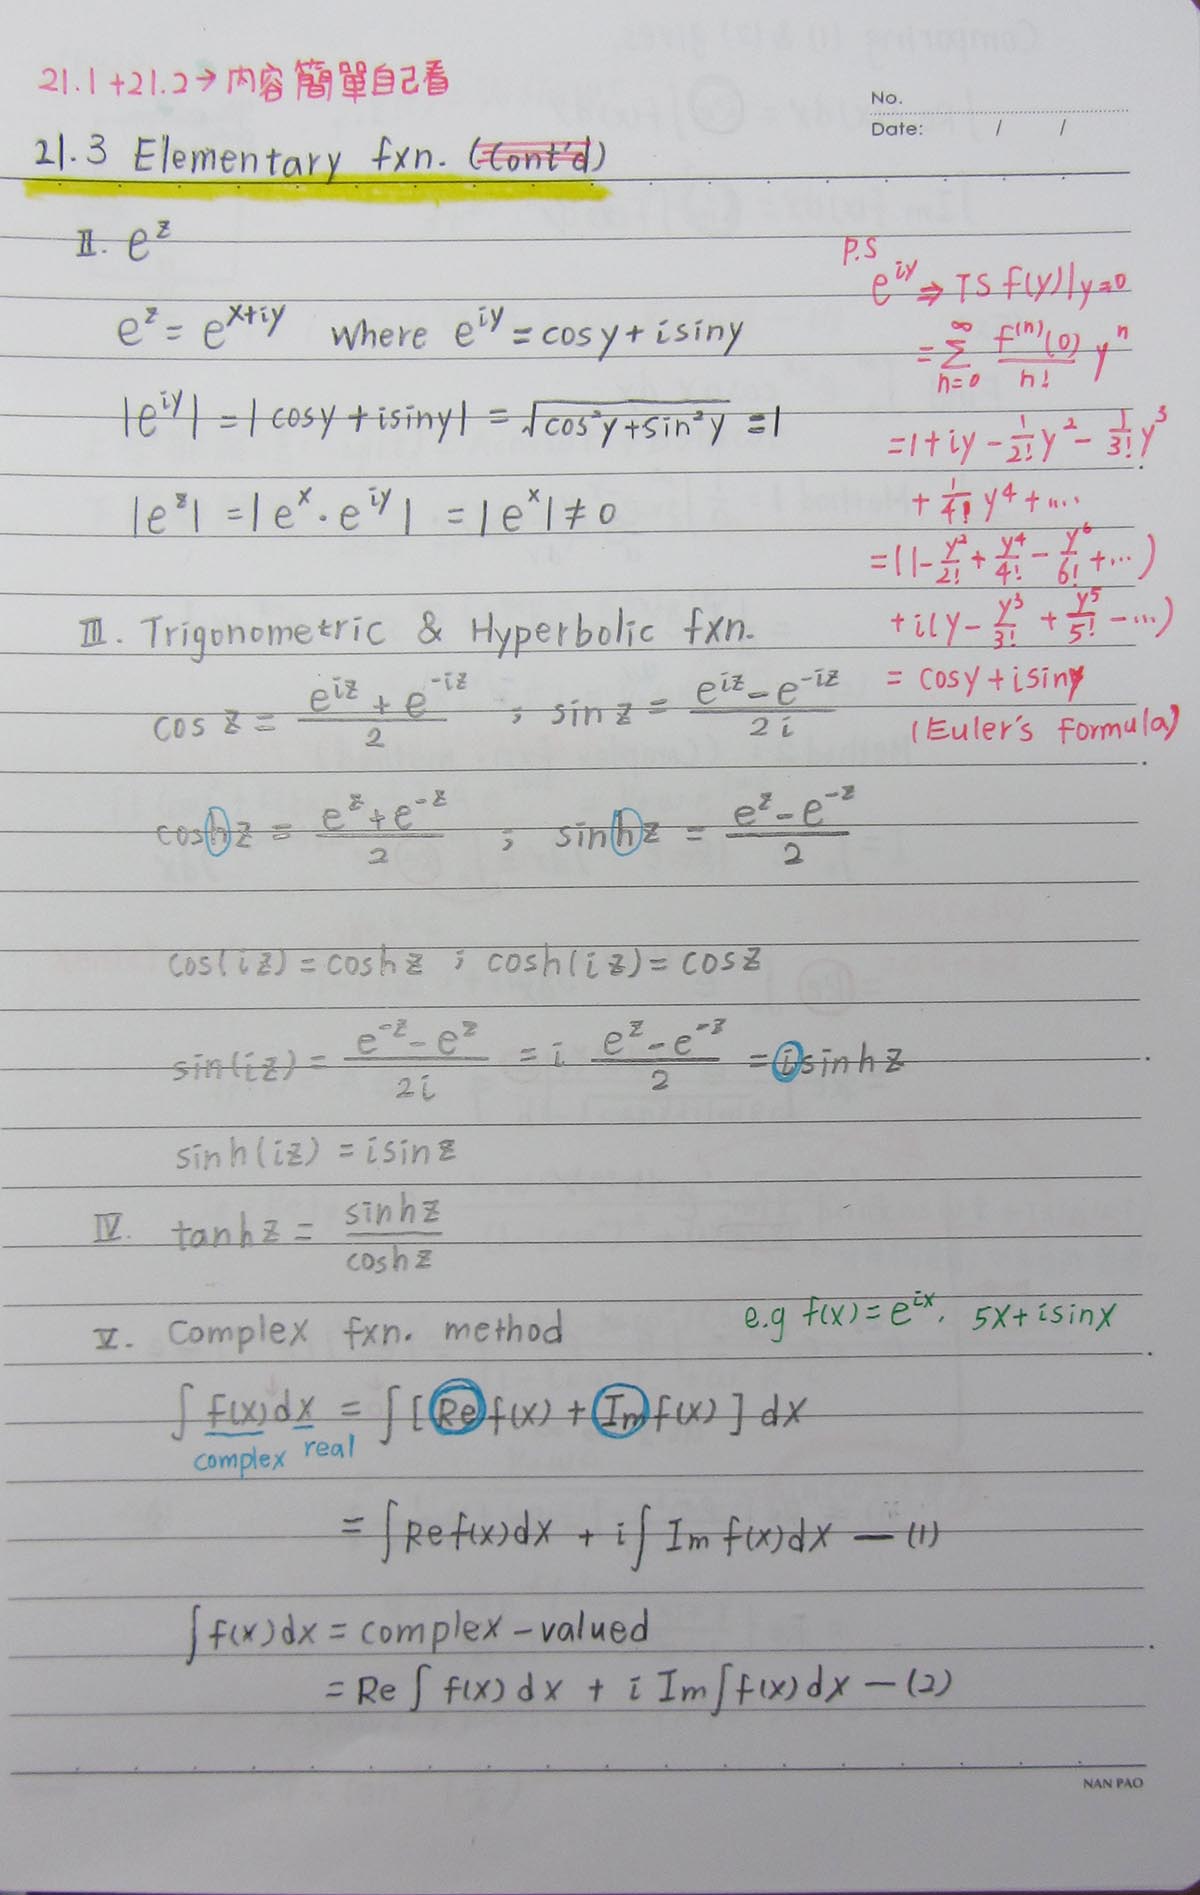 21.1+21.2→內容簡單自己看
No.
Date: / /
21.3 Elementary fxn. (Cont'd)
II. e^z
e^z = e^{x+iy} where e^{iy} = cosy + isiny
|e^{iy}| = |cosy + isiny| = √(cos²y + sin²y) = 1
|e^z| = |e^x · e^{iy}| = |e^x| ≠ 0
P.S
e^{iy} ⇒ TS f(y)|y=0
= Σ_{n=0}^{∞} f^{(n)}(0)/n! y^n
= 1 + iy - 1/2! y² - 1/3! y³
+ 1/4! y⁴ + ....
= (1 - y²/2! + y⁴/4! - y⁶/6! + ...)
+ i(y - y³/3! + y⁵/5! - ...)
= cosy + isiny
(Euler's formula)
III. Trigonometric & Hyperbolic fxn.
cos z = (e^{iz} + e^{-iz})/2 ; sin z = (e^{iz} - e^{-iz})/2i
coshz = (e^z + e^{-z})/2 ; sinhz = (e^z - e^{-z})/2
cos(iz) = coshz ; cosh(iz) = cosz
sin(iz) = (e^{-z} - e^z)/2i = i (e^z - e^{-z})/2 = isinhz
sinh(iz) = isinz
IV. tanhz = sinhz/coshz
V. Complex fxn. method
e.g f(x) = e^{ix}, 5x + isinx
∫ f(x)dx = ∫ [Re f(x) + Im f(x)] dx
complex real
= ∫ Re f(x)dx + i ∫ Im f(x)dx — (1)
∫ f(x)dx = complex-valued
= Re ∫ f(x)dx + i Im ∫ f(x)dx — (2)
NAN PAO